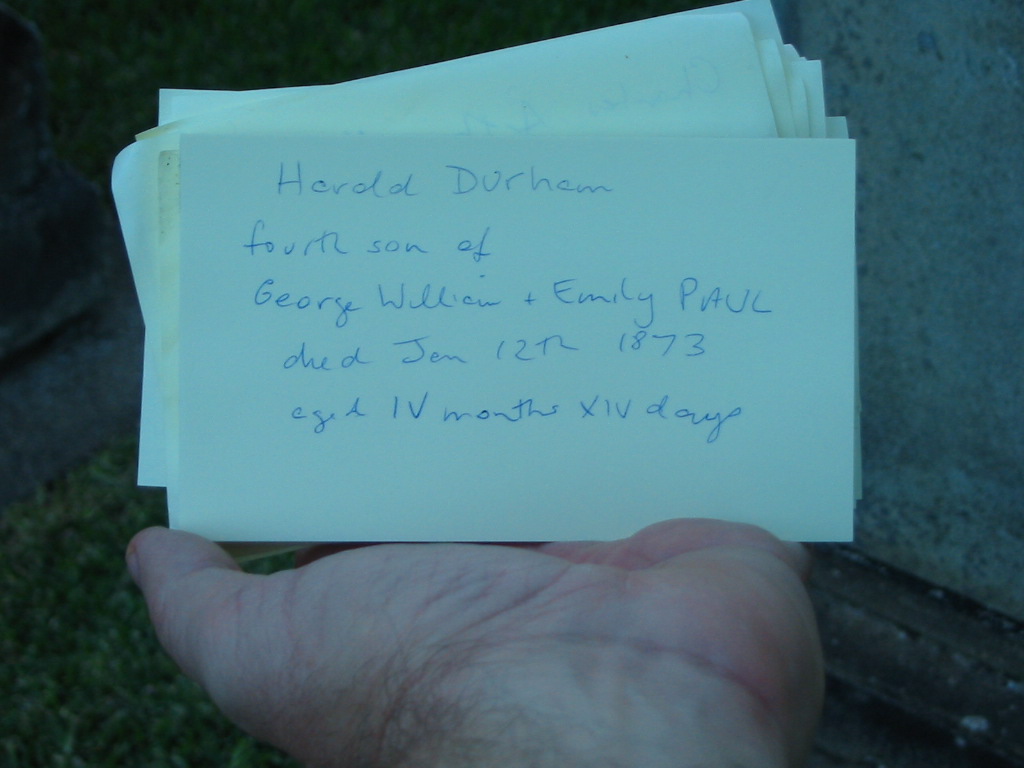 Harold Durham
fourth son of
George William + Emily PAUL
died Jan 12th 1873
aged IV months XIV days